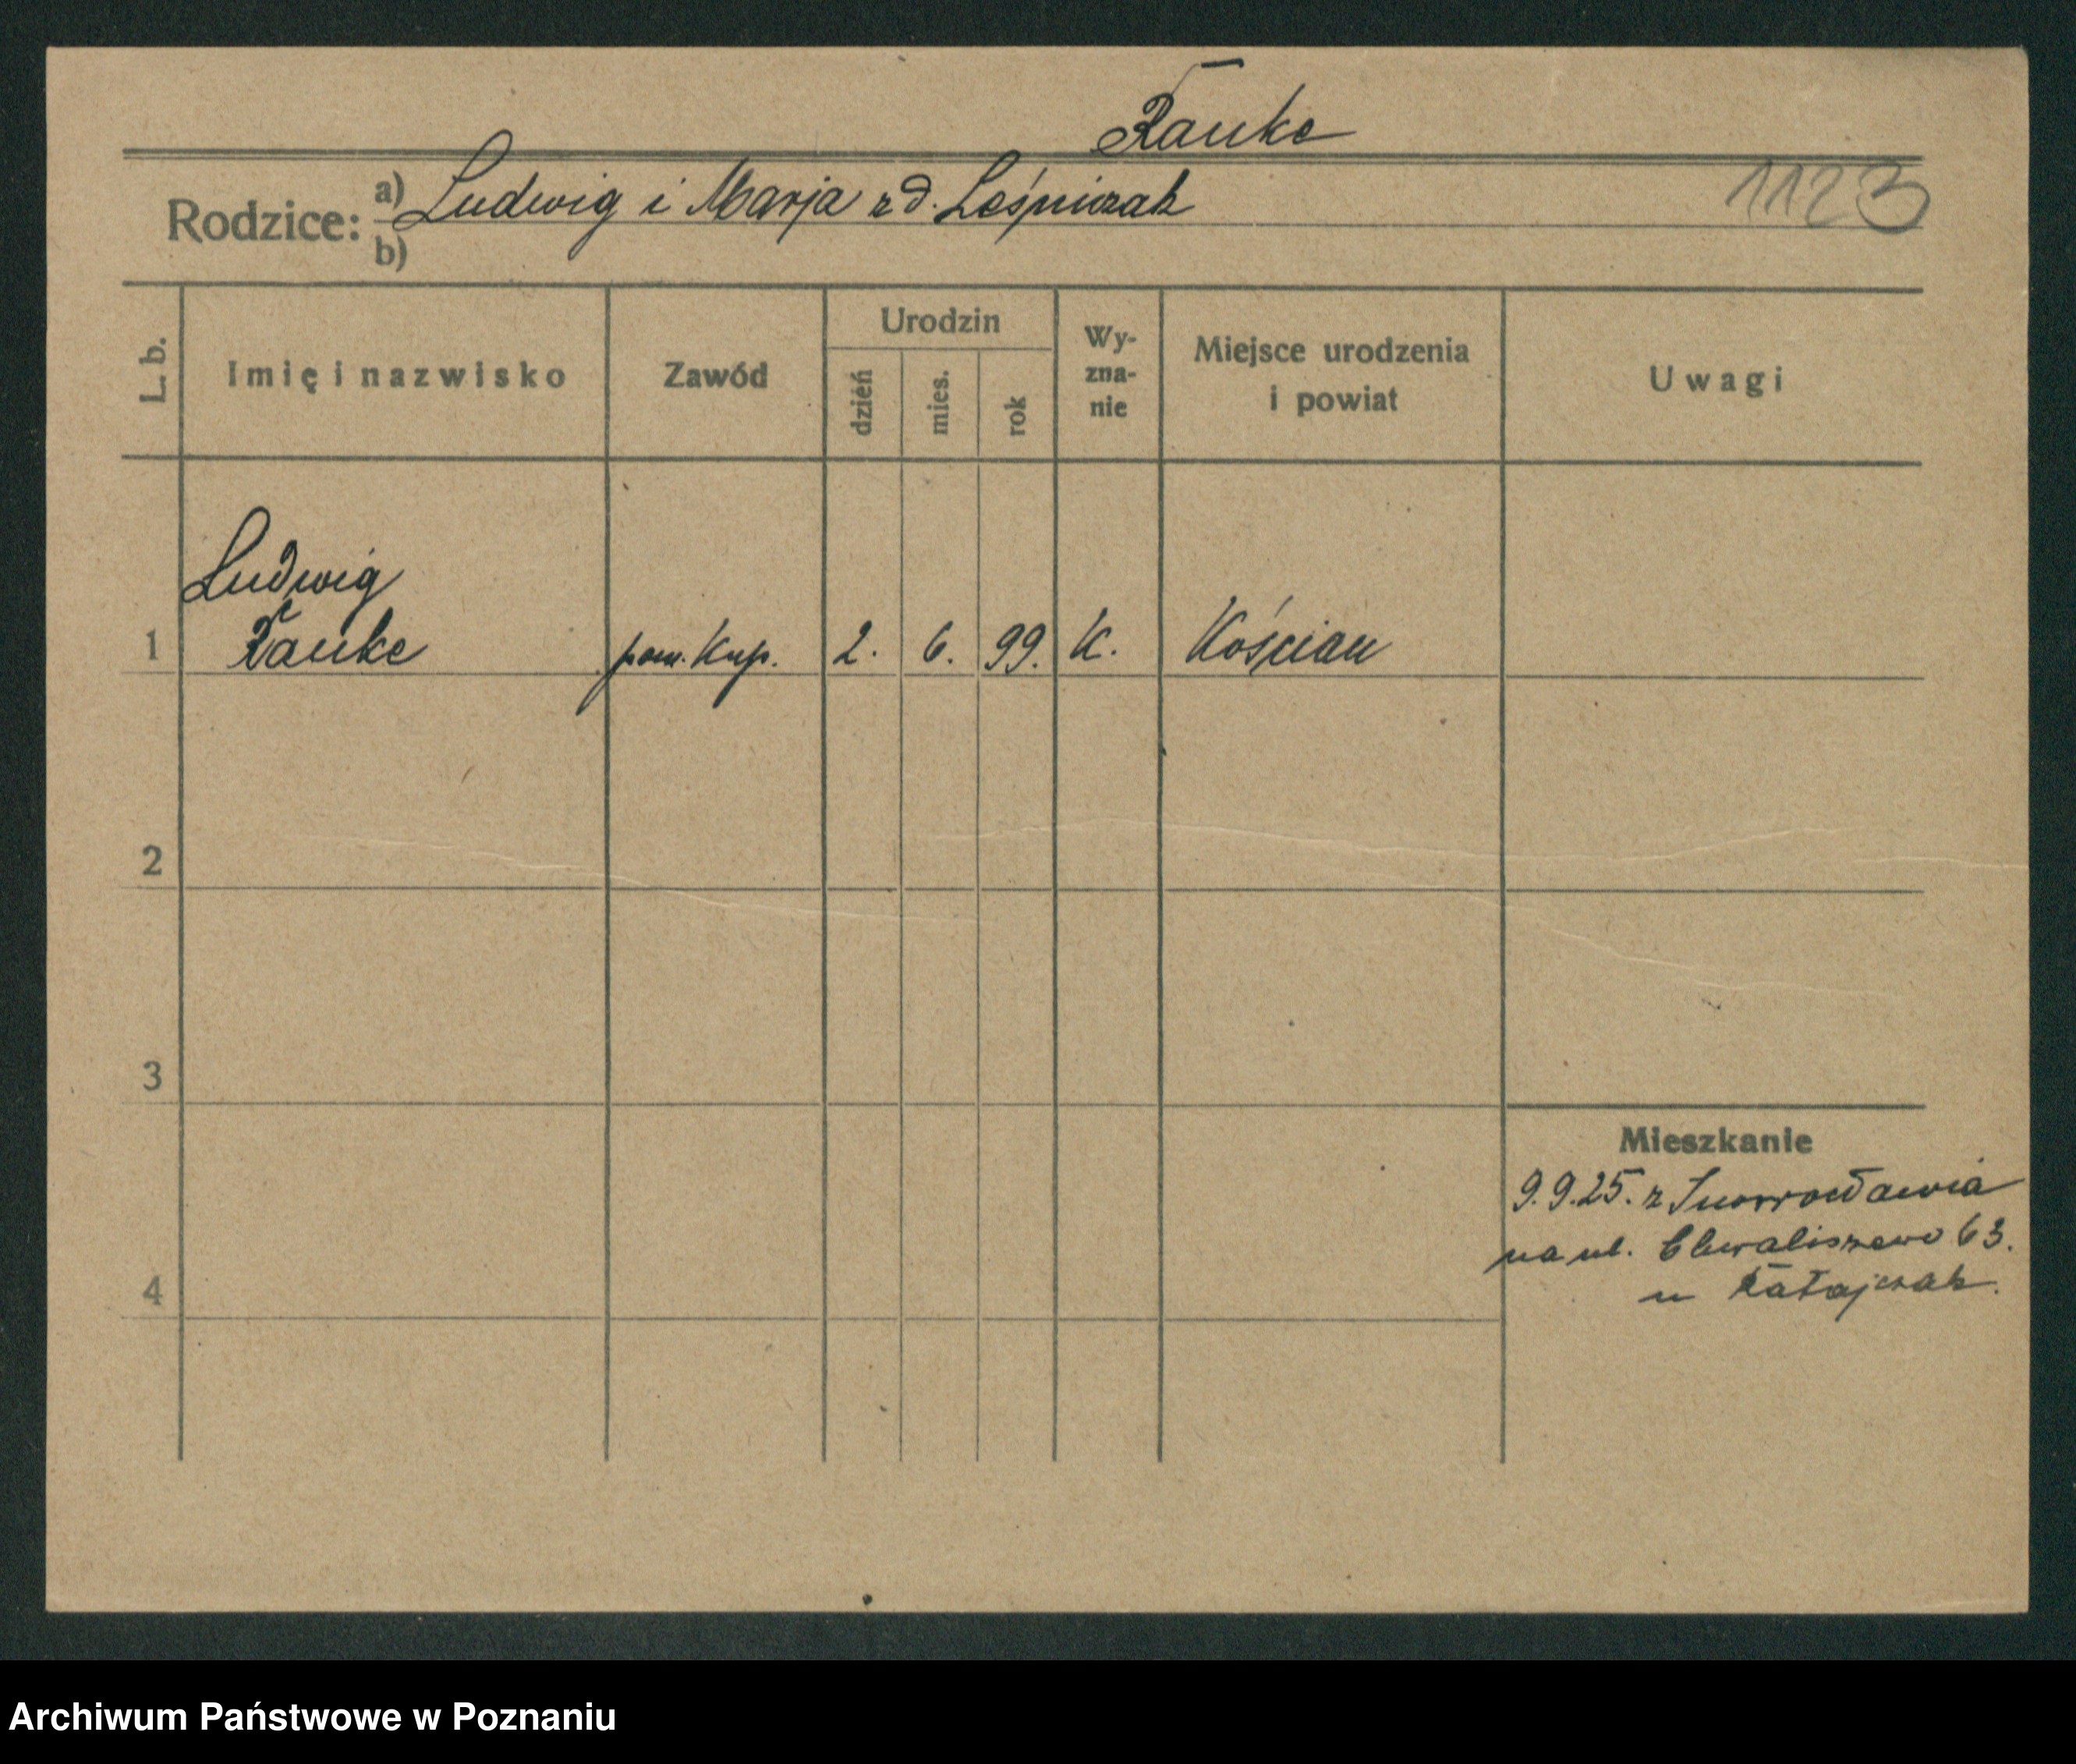 Ranke
Rodzice: a) Ludwig i Marja zd. Leśniczak
1123
b)
L. b.
Imię i nazwisko
Zawód
Urodzin
dzień
mies.
rok
Wy-
zna-
nie
Miejsce urodzenia
i powiat
Uwagi
Ludwig
1 Ranke pom. Kup. 2. 6. 99. K. Kościan
2
3
4
Mieszkanie
9.9.25. z Inowrocławia
na ul. Chwaliszewo 63.
u Ratajczak.
Archiwum Państwowe w Poznaniu